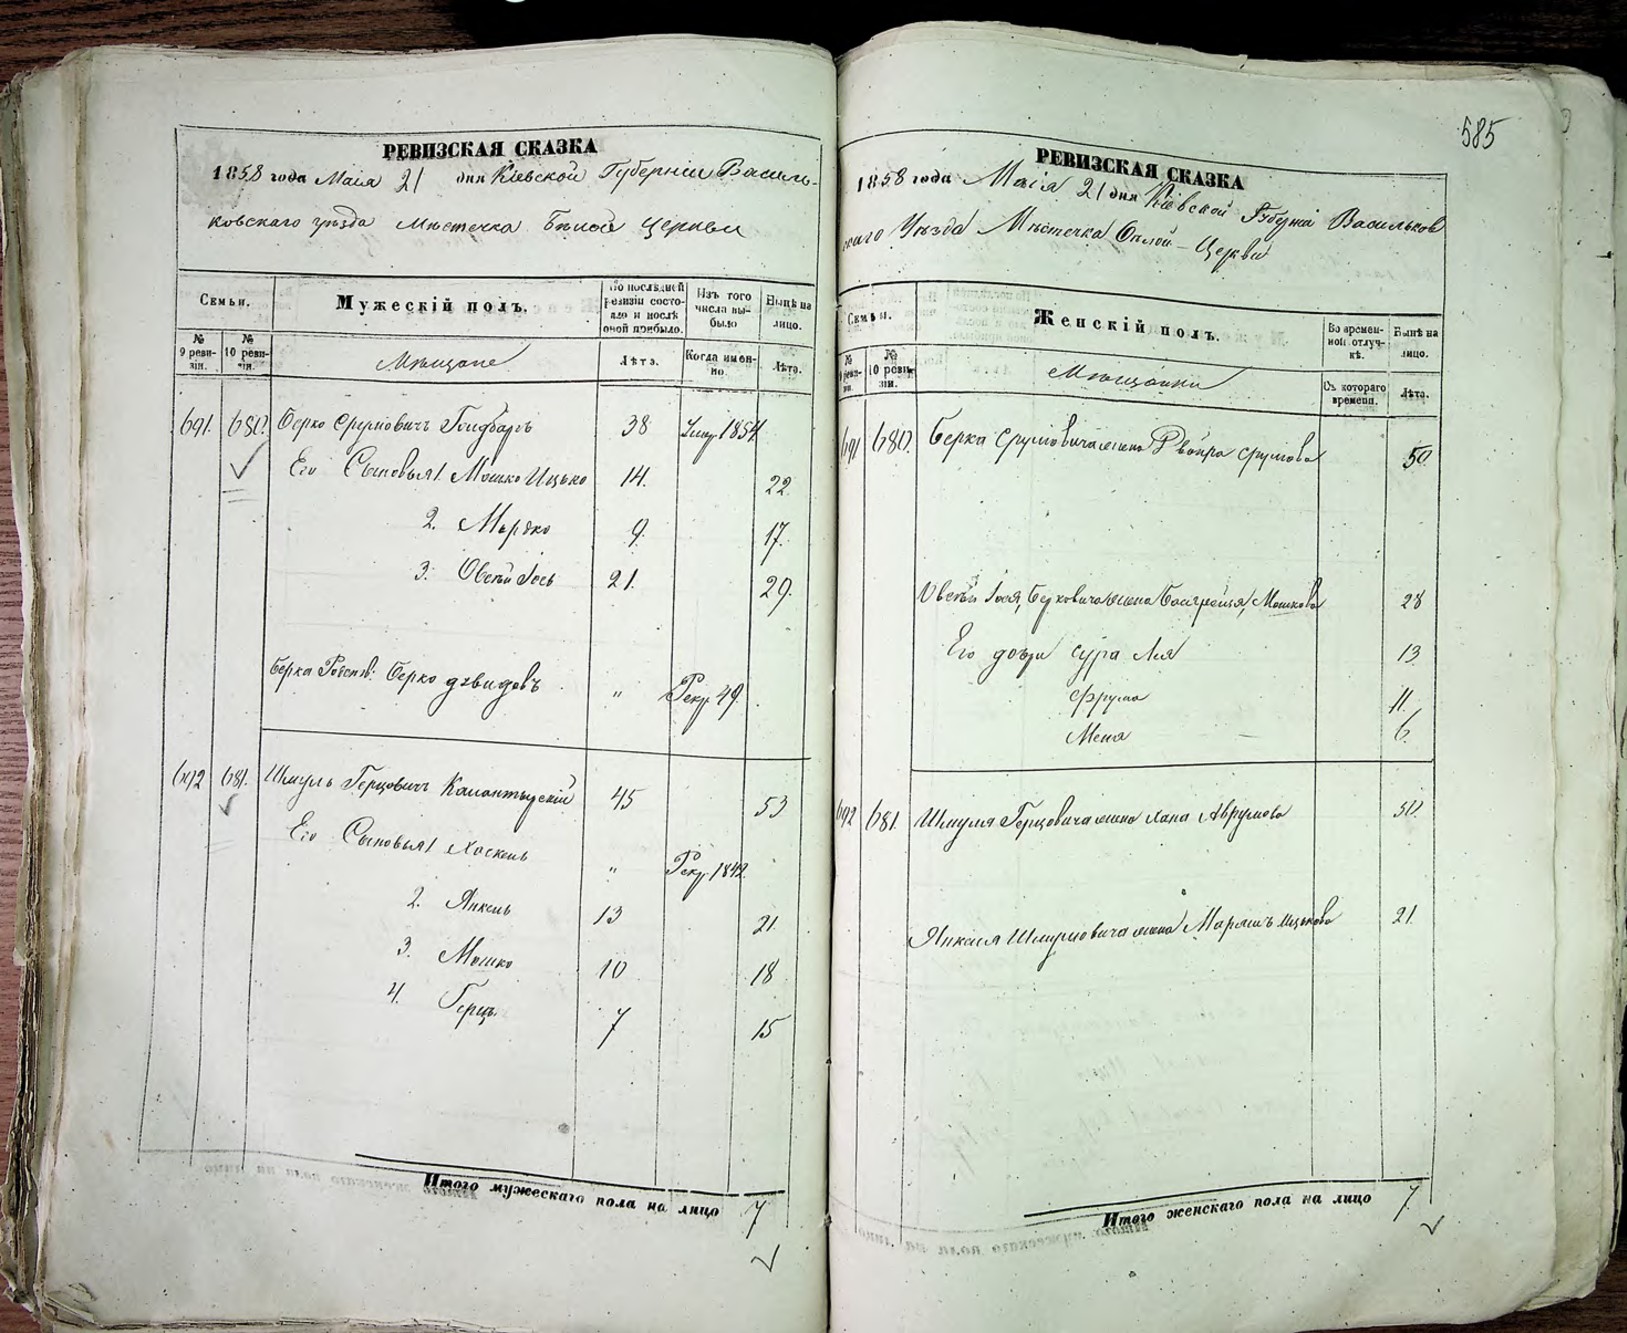 585
РЕВИЗСКАЯ СКАЗКА
1858 года Маія 21 дня Кіевской Губерніи Василь-
ковскаго уѣзда Мѣстечка Бѣлой Церкви
Семьи.
Мужескій полъ.
По послѣдней ревизіи состояло и послѣ оной прибыло.
Изъ того числа выбыло
Нынѣ на лицо.
№ 9 ревизіи.
№ 10 ревизіи.
Мѣщане
Лѣта.
Когда именно.
Лѣта.
691. 680. Берко Срулiовичъ 38 Умер 1854
Его Сыновья 1. Мошко Ицько 14. 22.
2. Мордко 9. 17.
3. Овсѣй Іось 21. 29.
Берка Родств: Берко Давидовъ " Рекр. 49.
692 681. Шмуль Герцовичъ 45 53
Его Сыновья 1 Хаскель " Рекр. 1849.
2. Янкель 13 21
3. Мошко 10 18
4. Герцъ. 7 15
Итого мужескаго пола на лицо 7
РЕВИЗСКАЯ СКАЗКА
1858 года Маія 21 дня Кіевской Губерніи Васильков
скаго Уѣзда Мѣстечка Бѣлой-Церкви
Семьи.
Женскій полъ.
Во временной отлучкѣ.
Нынѣ на лицо.
№ 9 ревизіи.
№ 10 ревизіи.
Мѣщанки
Съ котораго времени.
Лѣта.
691 680. Берка Срулiовича жена Двойра Срулiова 50.
Овсѣя Іося, Берковича жена Мошкова 28
Его дочери Сура Лея 13.
Фрума 11.
Меня 6.
692 681. Шмуля Герцовича жена Хана Аврумова 50.
Янкеля Шмулiовича жена Маріямъ Ицькова 21.
Итого женскаго пола на лицо 7.